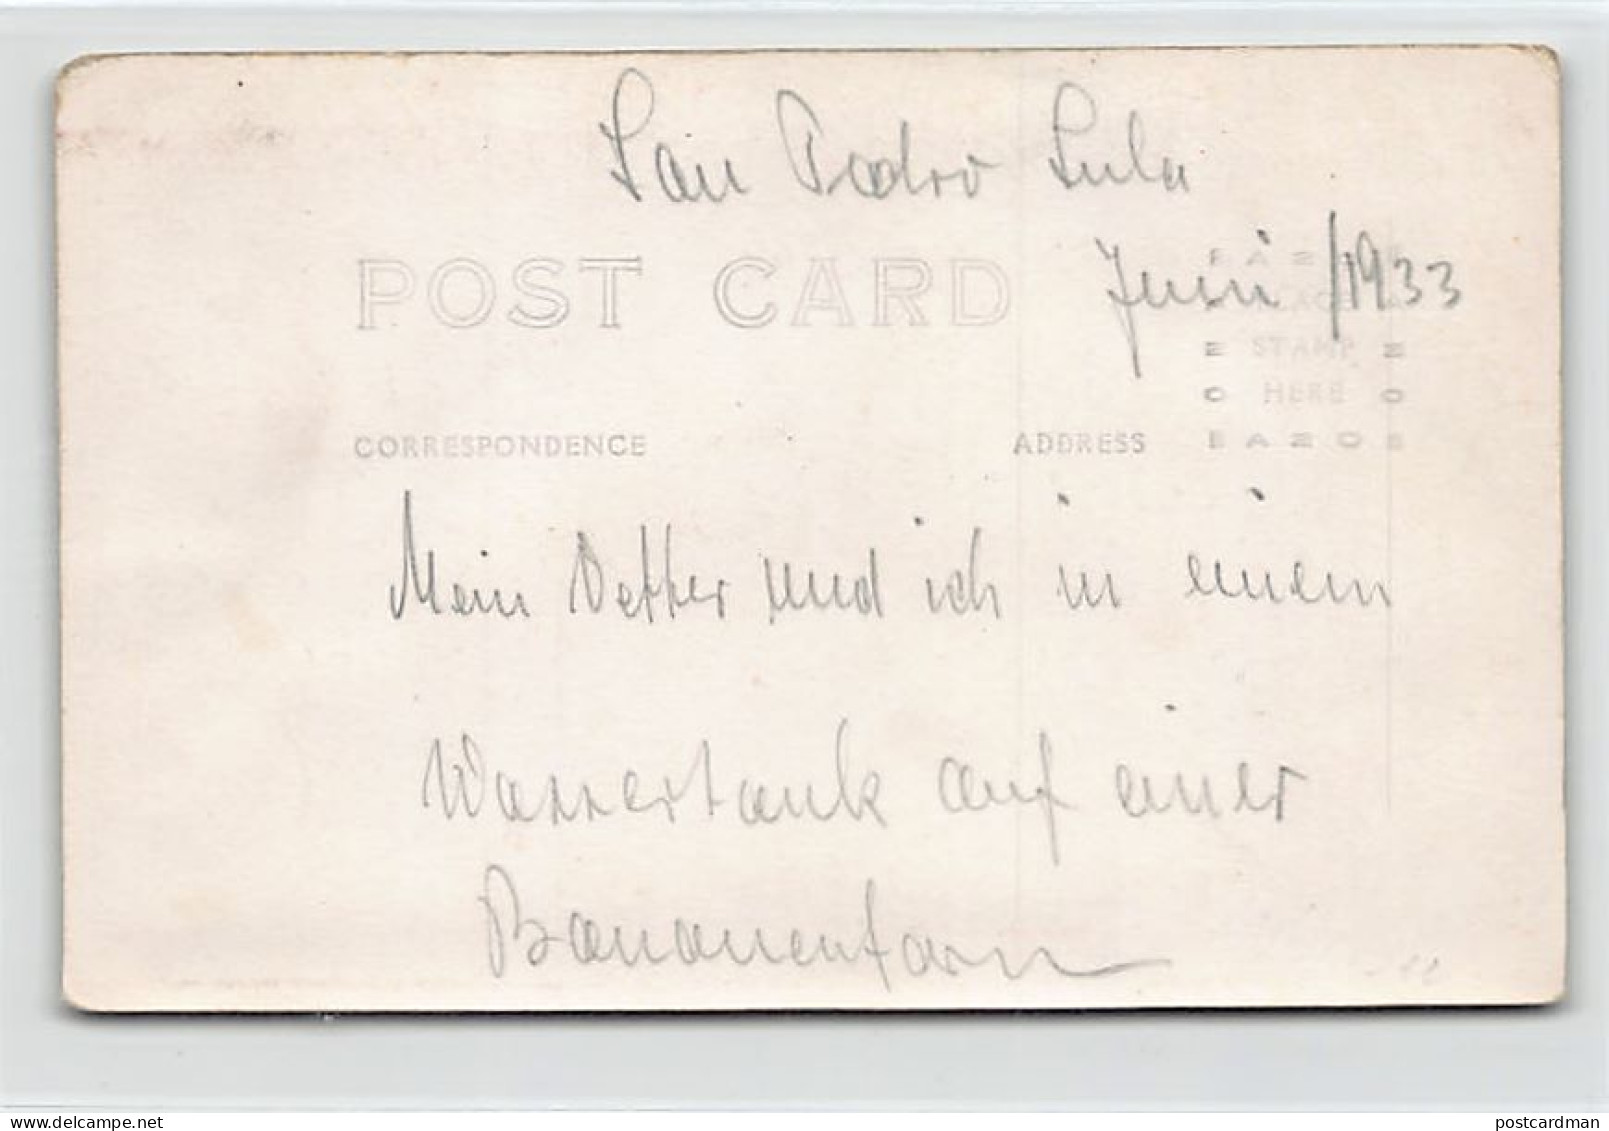 San Pedro Sula
Juni /1933
POST CARD
PLACE
STAMP
HERE
CORRESPONDENCE
ADDRESS
Mein Vetter und ich in einem
Wassertank auf einer
Bananenfarm
delcampe.net
postcardman